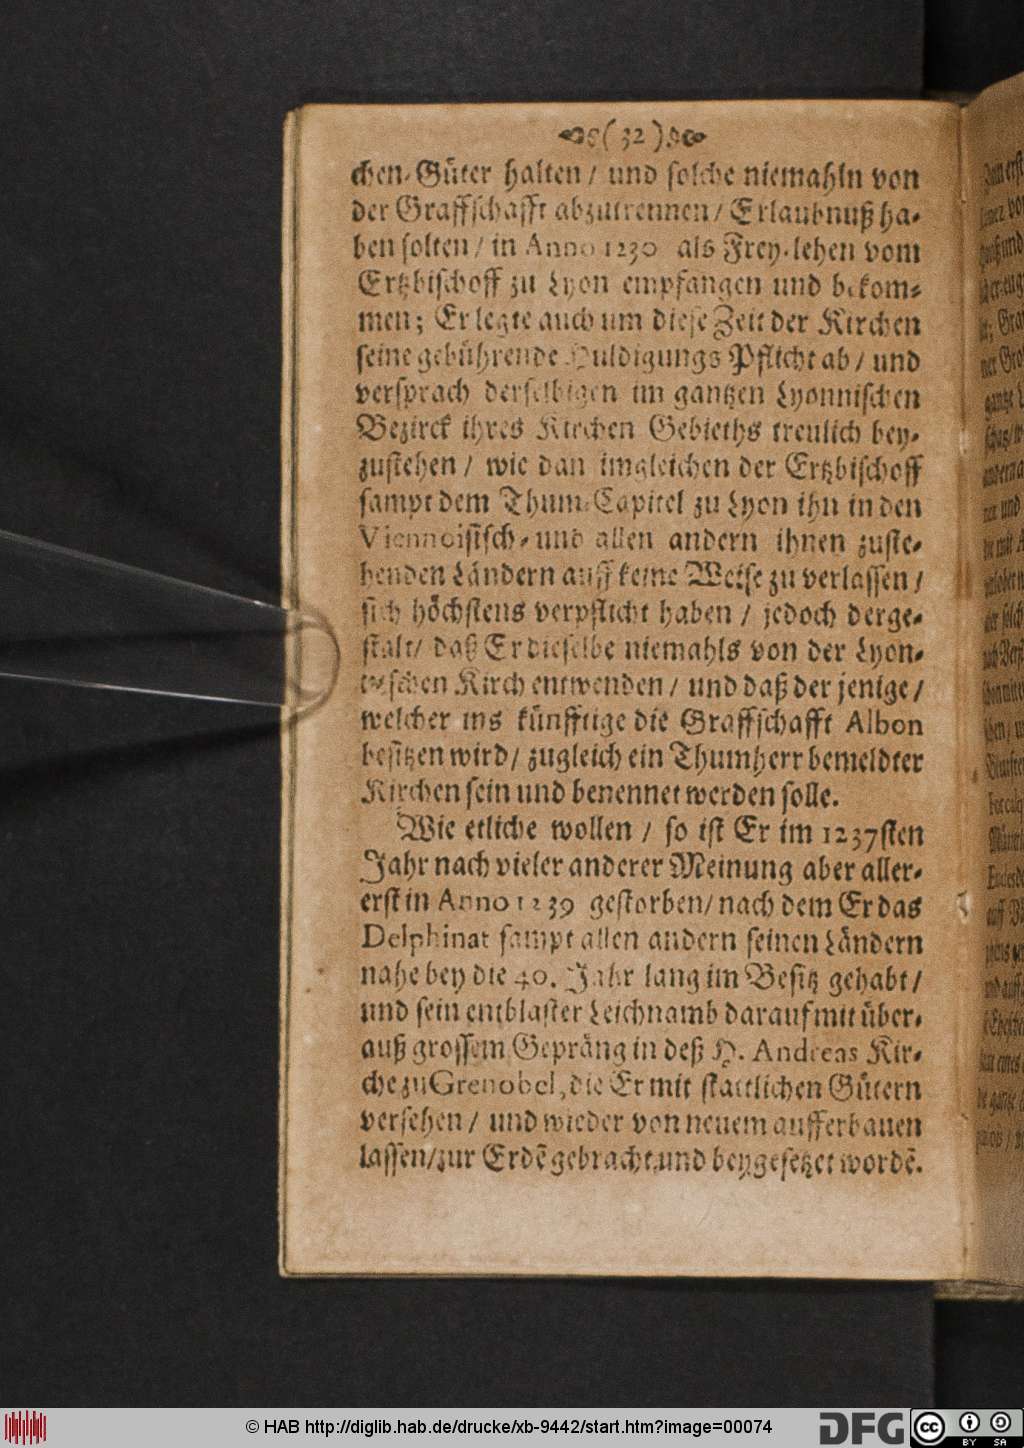 (32)
chen-Güter halten / und solche niemahln von
der Graffschafft abzutrennen / Erlaubnuß ha-
ben solten / in Anno 1230 als Frey-lehen vom
Ertzbischoff zu Lyon empfangen und bekom-
men; Er legte auch um diese Zeit der Kirchen
seine gebührende Huldigungs Pflicht ab / und
versprach derselbigen im gantzen Lyonnischen
Bezirck ihres Kirchen Gebieths treulich bey-
zustehen / wie dan imgleichen der Ertzbischoff
sampt dem Thum-Capitel zu Lyon ihn in den
Viennoisisch- und allen andern ihnen zuste-
henden Ländern auff keine Weise zu verlassen /
sich höchstens verpflicht haben / jedoch derge-
stalt / daß Er dieselbe niemahls von der Lyon-
nischen Kirch entwenden / und daß der jenige /
welcher ins künfftige die Graffschafft Albon
besitzen wird / zugleich ein Thumherr bemeldter
Kirchen sein und benennet werden solle.
Wie etliche wollen / so ist Er im 1237sten
Jahr nach vieler anderer Meinung aber aller-
erst in Anno 1239 gestorben / nach dem Er das
Delphinat sampt allen andern seinen Ländern
nahe bey die 40. Jahr lang im Besitz gehabt /
und sein entblaster Leichnamb darauf mit über-
auß grossem Gepräng in deß H. Andreas Kir-
che zu Grenobel, die Er mit stattlichen Gütern
versehen / und wieder von neuem aufferbauen
lassen / zur Erdē gebracht und beygesetzet wordē.
© HAB http://diglib.hab.de/drucke/xb-9442/start.htm?image=00074
DFG
cc BY SA